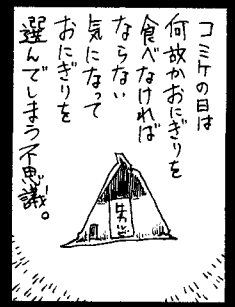 コミケの日は
何故かおにぎりを
食べなければ
ならない
気になって
おにぎりを
選んでしまう不思議。